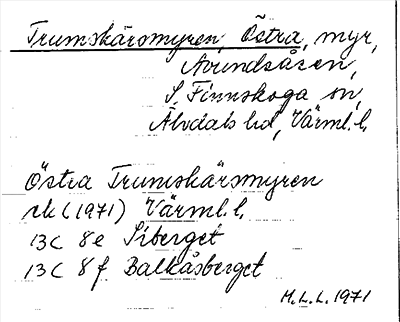 Trumskärsmyren, Östra, myr,
Avundsåsen,
S. Finnskoga sn,
Älvdals hd, Värml. l.
Östra Trumskärsmyren
rk (1971) Värml. l.
13C 8e Siberget
13C 8f Balkåsberget
M.L.L. 1971